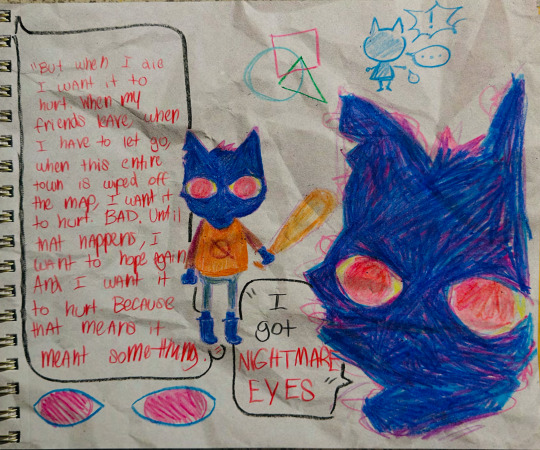 "But when I die
I want it to
hurt. When my
friends leave, when
I have to let go,
when this entire
town is wiped off
the map, I want it
to hurt. BAD. Until
that happens, I
want to hope again
And I want it
to hurt BECAUSE
that means it
meant something.
!
...
"I
got
NIGHTMARE
EYES"